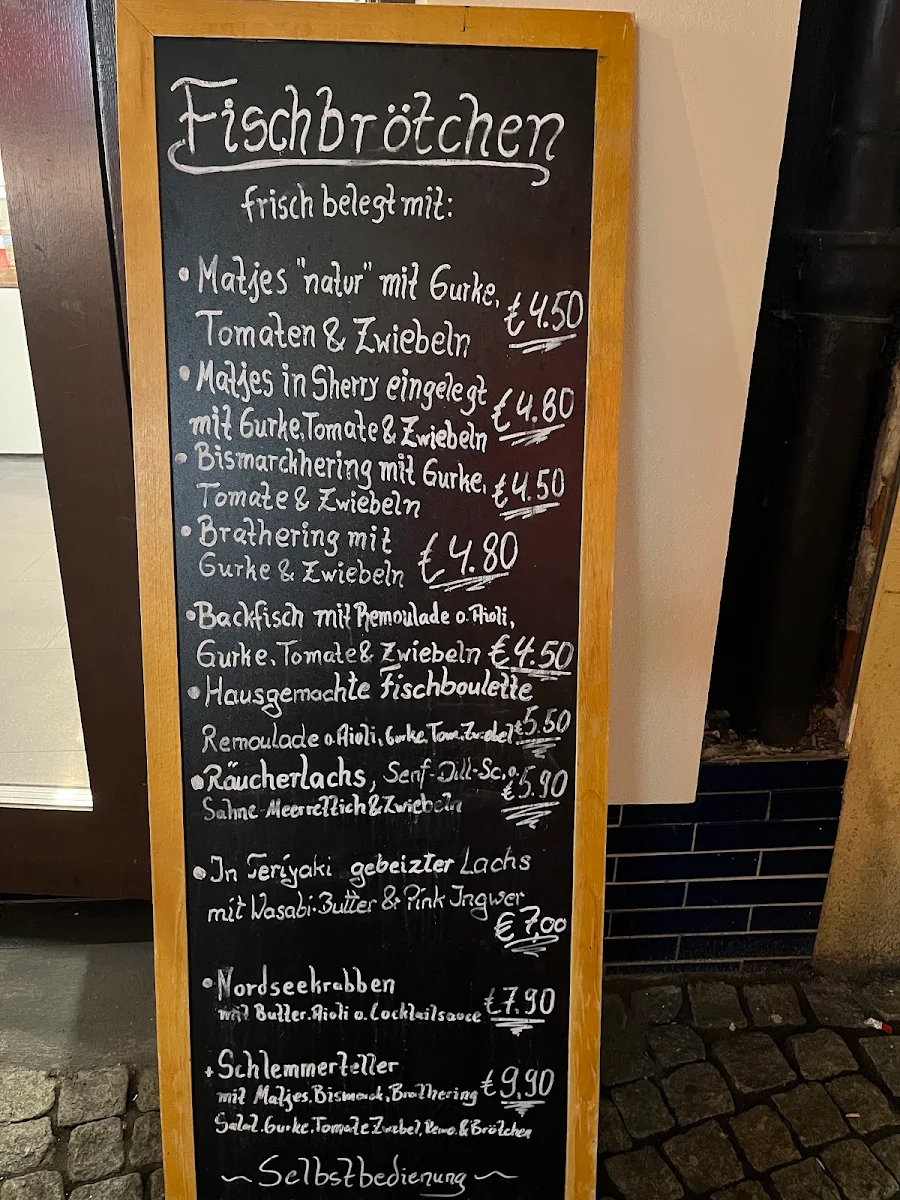 Fischbrötchen
frisch belegt mit:
• Matjes "natur" mit Gurke, €4.50
Tomaten & Zwiebeln
• Matjes in Sherry eingelegt €4.80
mit Gurke, Tomate & Zwiebeln
• Bismarckhering mit Gurke, €4.50
Tomate & Zwiebeln
• Brathering mit
Gurke & Zwiebeln €4.80
• Backfisch mit Remoulade o. Aioli,
Gurke, Tomate & Zwiebeln €4.50
• Hausgemachte Fischboulette
Remoulade o. Aioli, Gurke, Tom. Zwiebel €5.50
• Räucherlachs, Senf-Dill-Sc, o. €5.90
Sahne-Meerrettich & Zwiebeln
• In Teriyaki gebeizter Lachs
mit Wasabi-Butter & Pink Ingwer
€7,00
• Nordseekrabben
mit Butter. Aioli o. Cocktailsauce €7.90
+ Schlemmerteller
mit Matjes, Bismarck, Brathering €9,90
Salat. Gurke. Tomate. Zwiebel, Remo. & Brötchen
~ Selbstbedienung ~